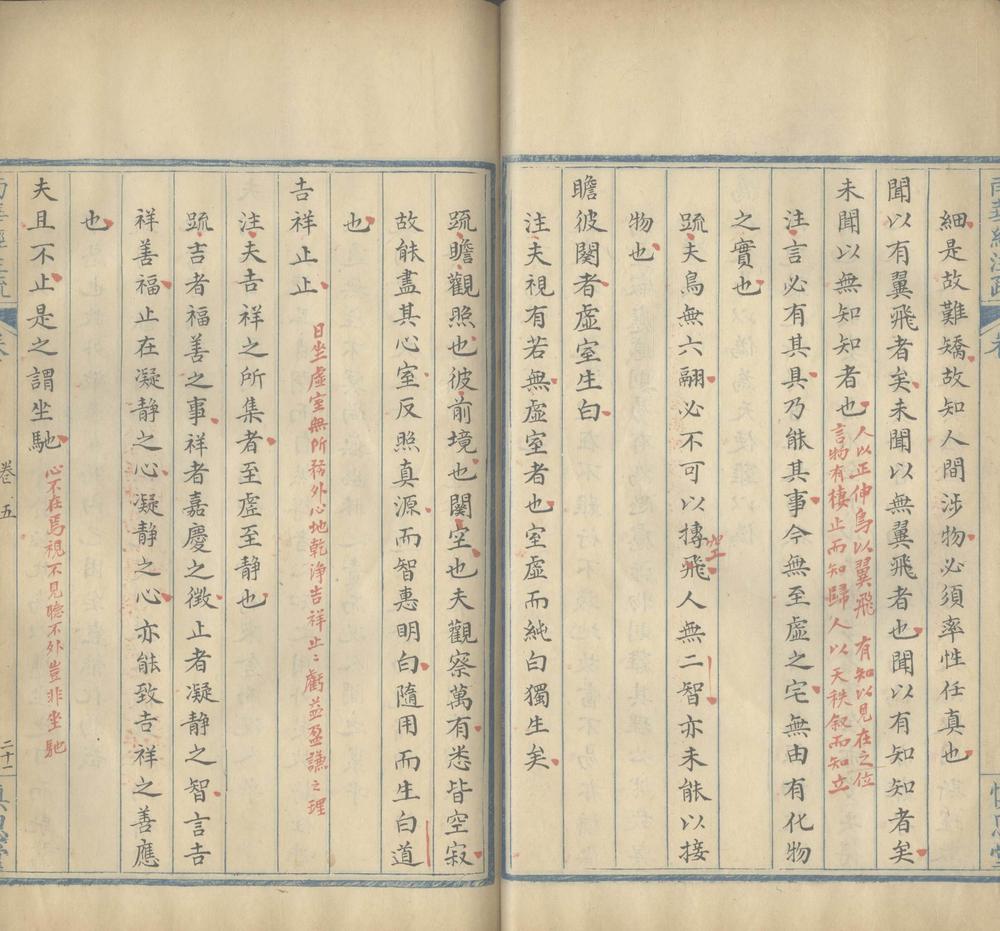 細是故難矯故知人間涉物必須率性任真也
聞以有翼飛者矣未聞以無翼飛者也聞以有知知者矣
未聞以無知知者也
人以正伸鳥以翼飛 有知以見在之位
言物有棲止而知歸人以天秩叙而知立
注言必有其具乃能其事今無至虛之宅無由有化物
之實也
疏夫鳥無六翮必不可以摶飛人無二智亦未能以接
物也
瞻彼闋者虛室生白
注夫視有若無虛室者也室虛而純白獨生矣
疏瞻觀照也彼前境也闋空也夫觀察萬有悉皆空寂
故能盡其心室反照真源而智惠明白隨用而生白道
也
吉祥止止
日坐虛室無所務外心地乾淨吉祥止〻虧益盈謙之理
注夫吉祥之所集者至虛至静也
疏吉者福善之事祥者嘉慶之徵止者凝静之智言吉
祥善福止在凝静之心凝静之心亦能致吉祥之善應
也
夫且不止是之謂坐馳
心不在焉視不見聽不外豈非坐馳
卷五
二十二